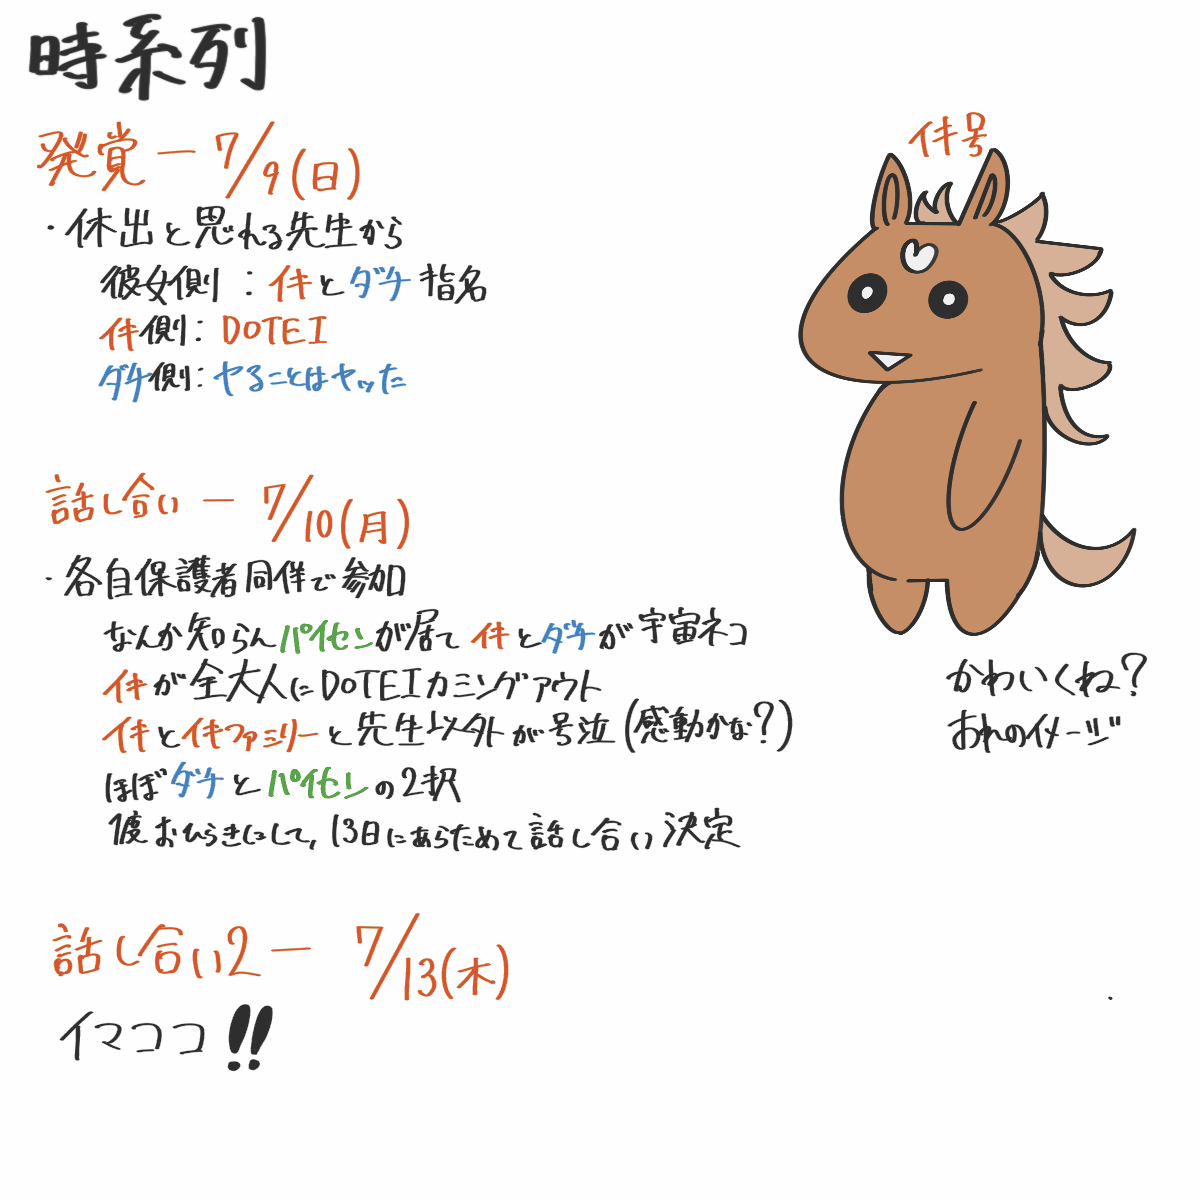 時系列
発覚 ー 7/9(日)
・休出と思われる先生から
彼女側：イキとダチ指名
イキ側：DOTEI
ダチ側：ヤることはヤッた
話し合い ー 7/10(月)
・各自保護者同伴で参加
なんか知らんパイセンが居てイキとダチが宇宙ネコ
イキが全大人にDOTEIカミングアウト
イキとイキファミリーと先生以外が号泣(感動かな？)
ほぼダチとパイセンの2択
1度おひらきにして、13日にあらためて話し合い決定
話し合い2 ー 7/13(木)
イマココ!!
イキ号
かわいくね？
おれのイメージ